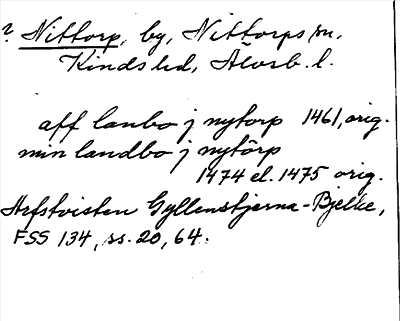 ? Nittorp, by, Nittorps sn,
Kinds hd, Älvsb. l.
aff lanbo j nytorp 1461, orig.
min landbo j nytörp
1474 el. 1475 orig.
Arfstvisten Gyllenstjerna-Bjelke,
FSS 134, ss. 20, 64.